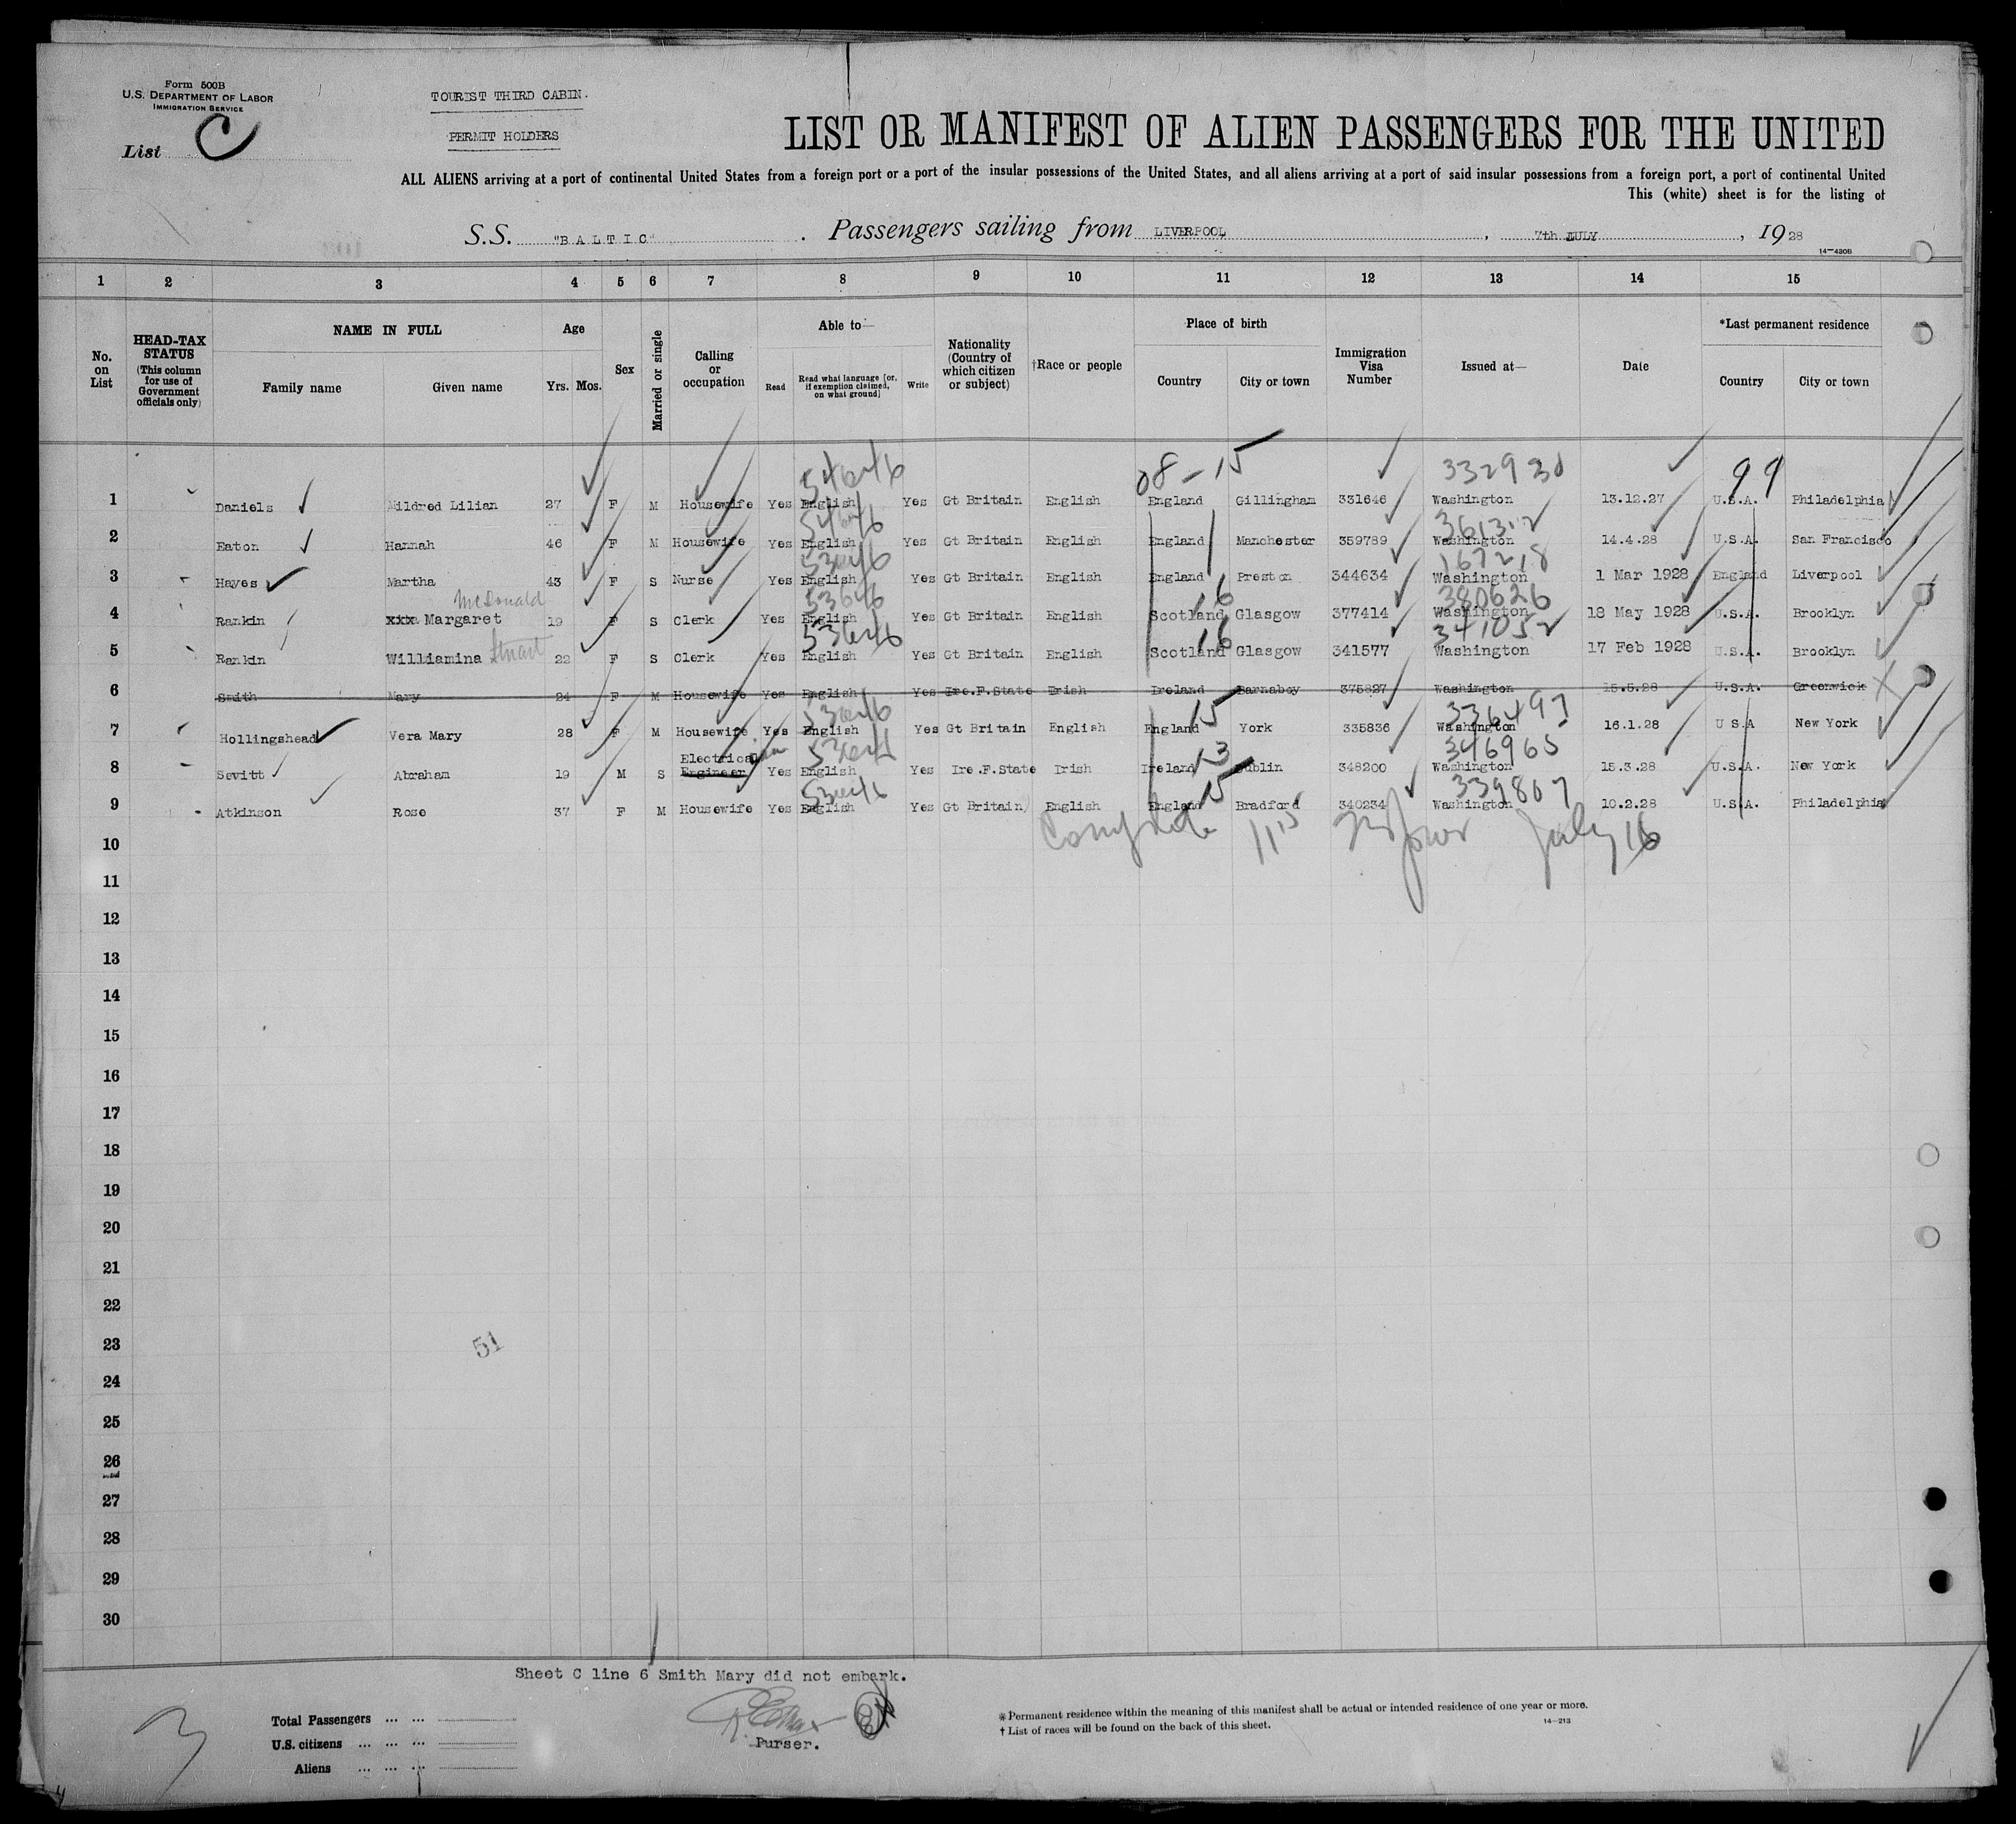 Form 500B
U.S. DEPARTMENT OF LABOR
IMMIGRATION SERVICE
List C
TOURIST THIRD CABIN.
PERMIT HOLDERS
LIST OR MANIFEST OF ALIEN PASSENGERS FOR THE UNITED
ALL ALIENS arriving at a port of continental United States from a foreign port or a port of the insular possessions of the United States, and all aliens arriving at a port of said insular possessions from a foreign port, a port of continental United
This (white) sheet is for the listing of
S.S. "BALTIC". Passengers sailing from LIVERPOOL, 7th JULY, 1928
14-430B
1 2 3 4 5 6 7 8 9 10 11 12 13 14 15
No. on List
HEAD-TAX STATUS (This column for use of Government officials only)
NAME IN FULL
Family name Given name
Age
Yrs. Mos.
Sex
Married or single
Calling or occupation
Able to—
Read Read what language [or, if exemption claimed, on what ground] Write
Nationality (Country of which citizen or subject)
†Race or people
Place of birth
Country City or town
Immigration Visa Number
Issued at—
Date
*Last permanent residence
Country City or town
08-15 332930 99
1 Daniels Mildred Lilian 27 F M Housewife Yes English Yes Gt Britain English England Gillingham 331646 Washington 13.12.27 U.S.A. Philadelphia
2 Eaton Hannah 46 F M Housewife Yes English Yes Gt Britain English England Manchester 359789 Washington 14.4.28 U.S.A. San Francisco
167218
3 Hayes Martha 43 F S Nurse Yes English Yes Gt Britain English England Preston 344634 Washington 1 Mar 1928 England Liverpool
McDonald 53646 16 380626
4 Rankin xxx Margaret 19 F S Clerk Yes English Yes Gt Britain English Scotland Glasgow 377414 Washington 18 May 1928 U.S.A. Brooklyn
16 341052
5 Rankin Williamina Stuart 22 F S Clerk Yes English Yes Gt Britain English Scotland Glasgow 341577 Washington 17 Feb 1928 U.S.A. Brooklyn
6 Smith Mary 24 F M Housewife Yes English Yes Ire.F.State Irish Ireland Barnaboy 375827 Washington 15.5.28 U.S.A. Greenwick
15 336497
7 Hollingshead Vera Mary 28 F M Housewife Yes English Yes Gt Britain English England York 335836 Washington 16.1.28 U S.A New York
13 346965
8 Sevitt Abraham 19 M S Electrical Engineer Yes English Yes Ire.F.State Irish Ireland Dublin 348200 Washington 15.3.28 U.S.A. New York
15 339807
9 Atkinson Rose 37 F M Housewife Yes English Yes Gt Britain English England Bradford 340234 Washington 10.2.28 U.S.A. Philadelphia
July 16
10
11
12
13
14
15
16
17
18
19
20
21
22
23
51
24
25
26
27
28
29
30
Sheet C line 6 Smith Mary did not embark.
Total Passengers ... ...
U.S. citizens ... ... ...
Aliens ... ... ...
Purser.
3
* Permanent residence within the meaning of this manifest shall be actual or intended residence of one year or more.
† List of races will be found on the back of this sheet.
14-213